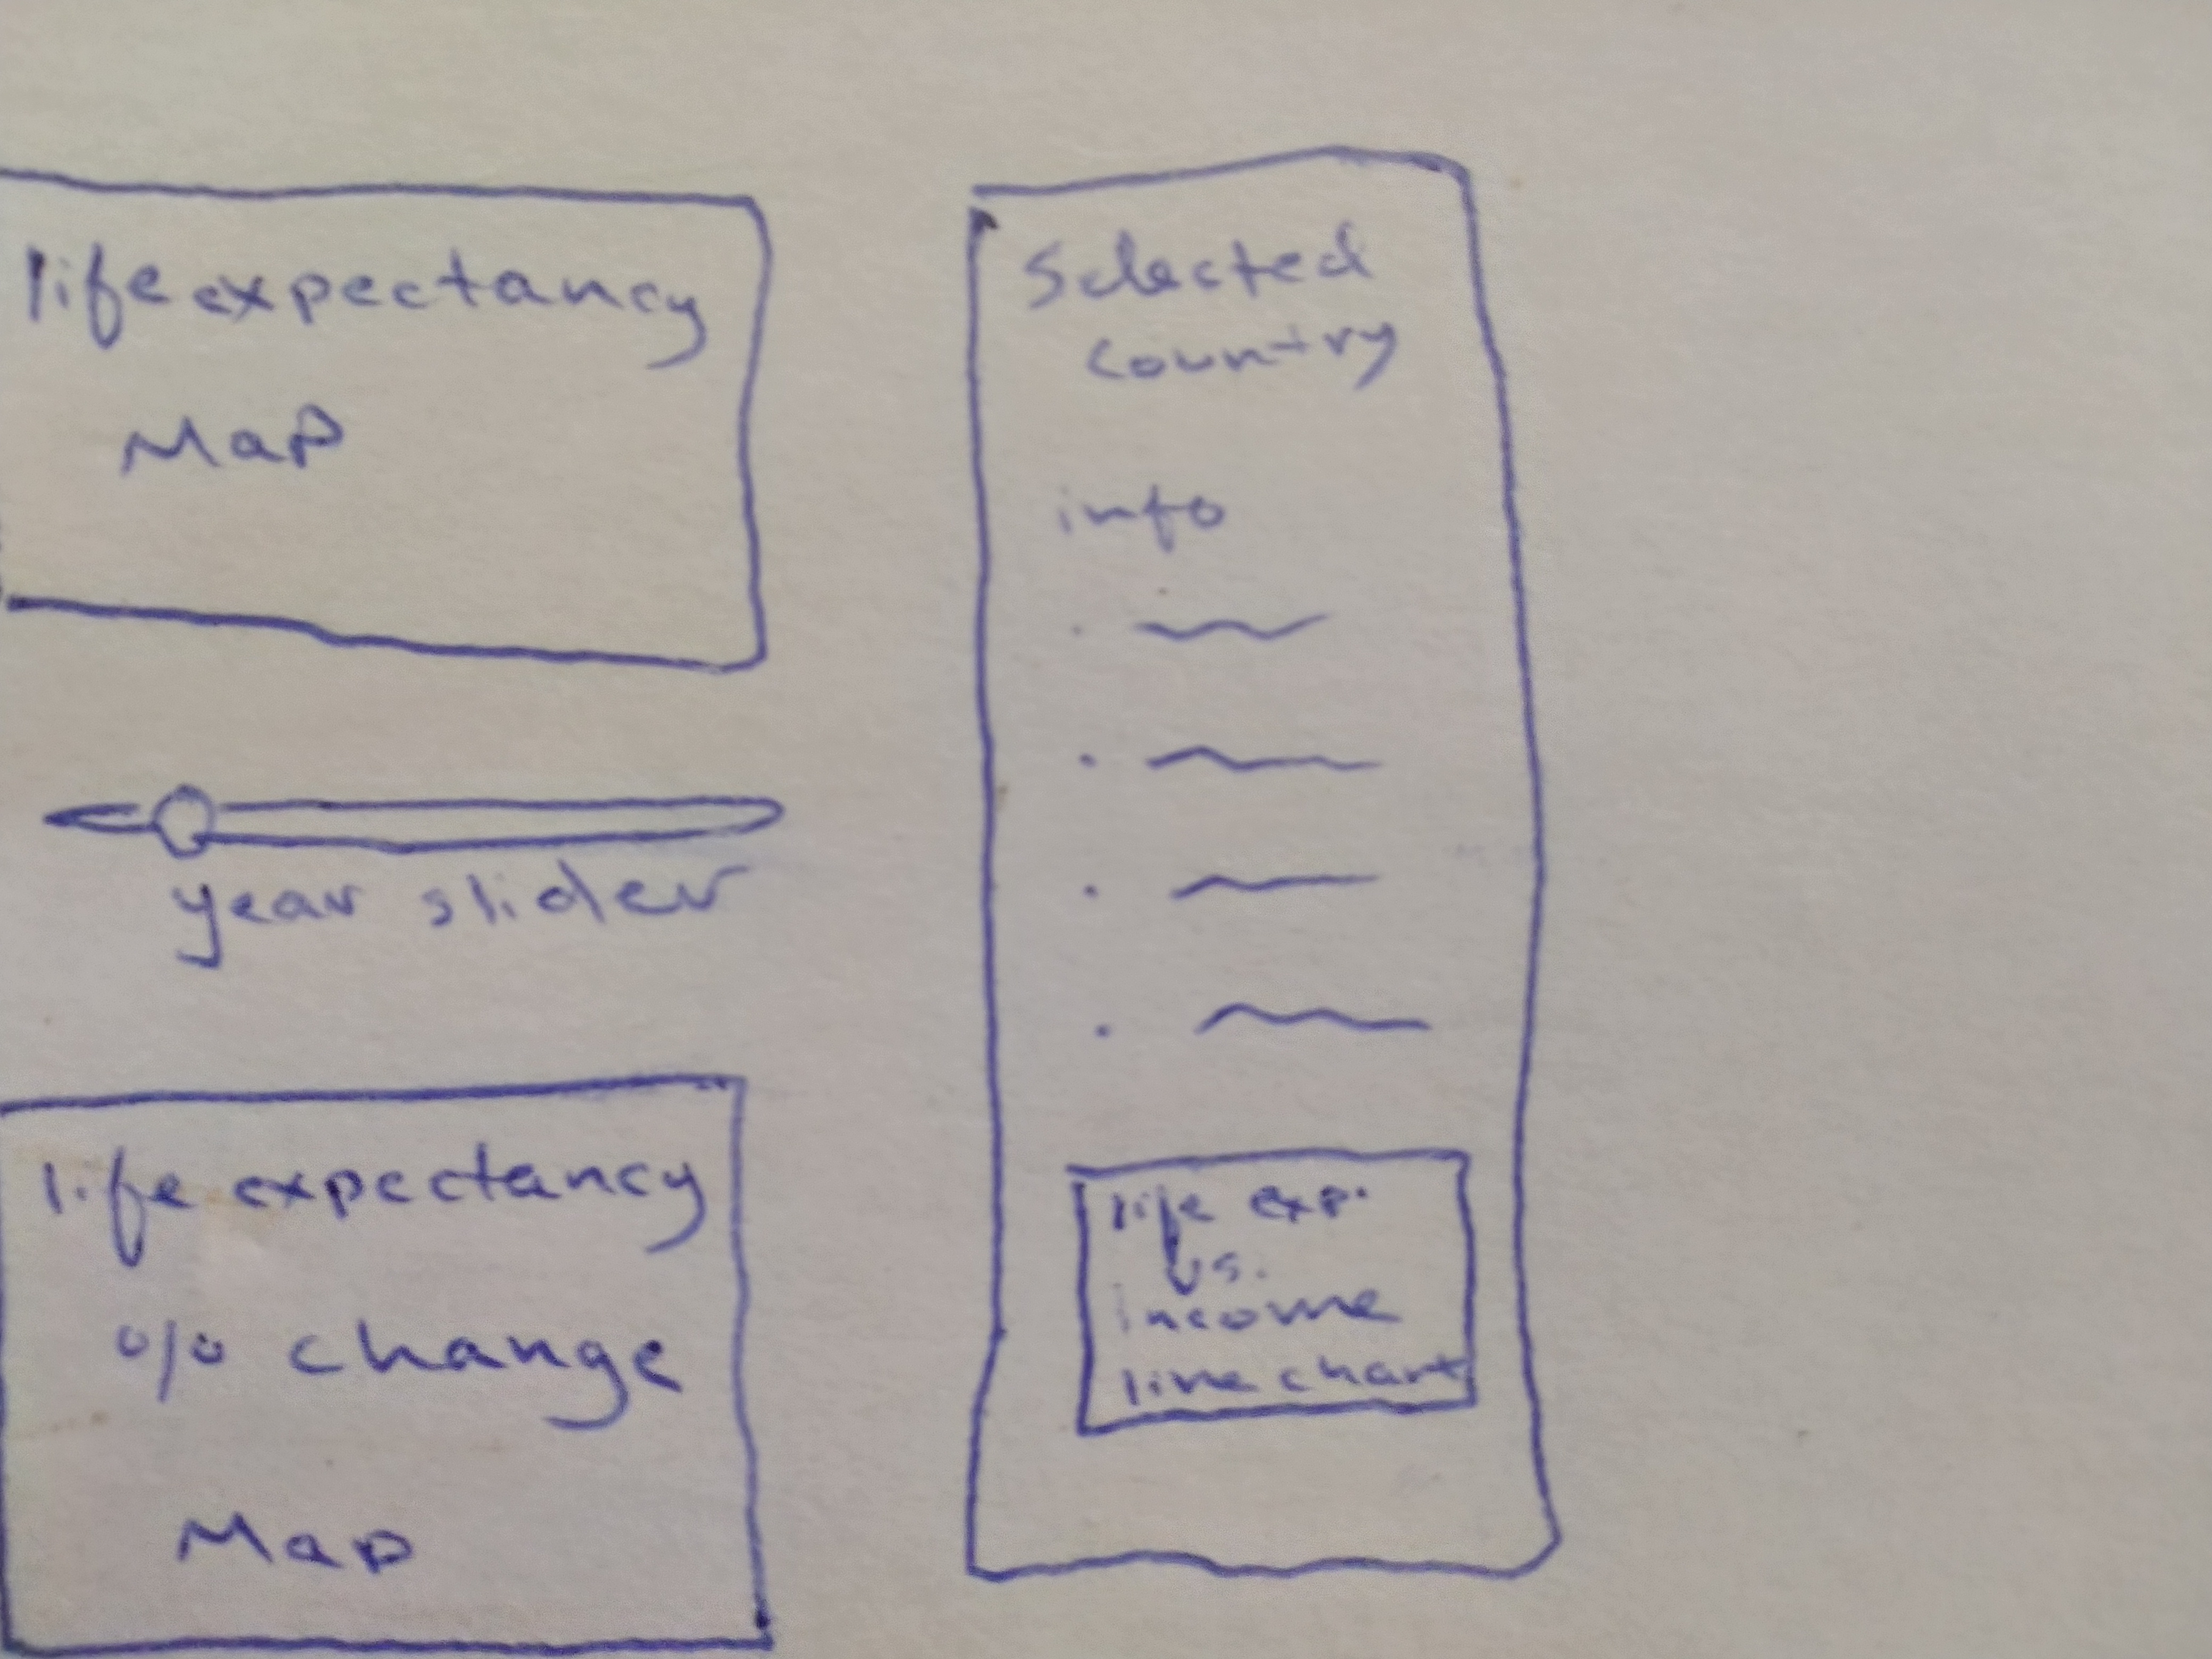 life expectancy
Map
year slider
life expectancy
% change
Map
Selected
country
info
life exp.
vs.
income
line chart